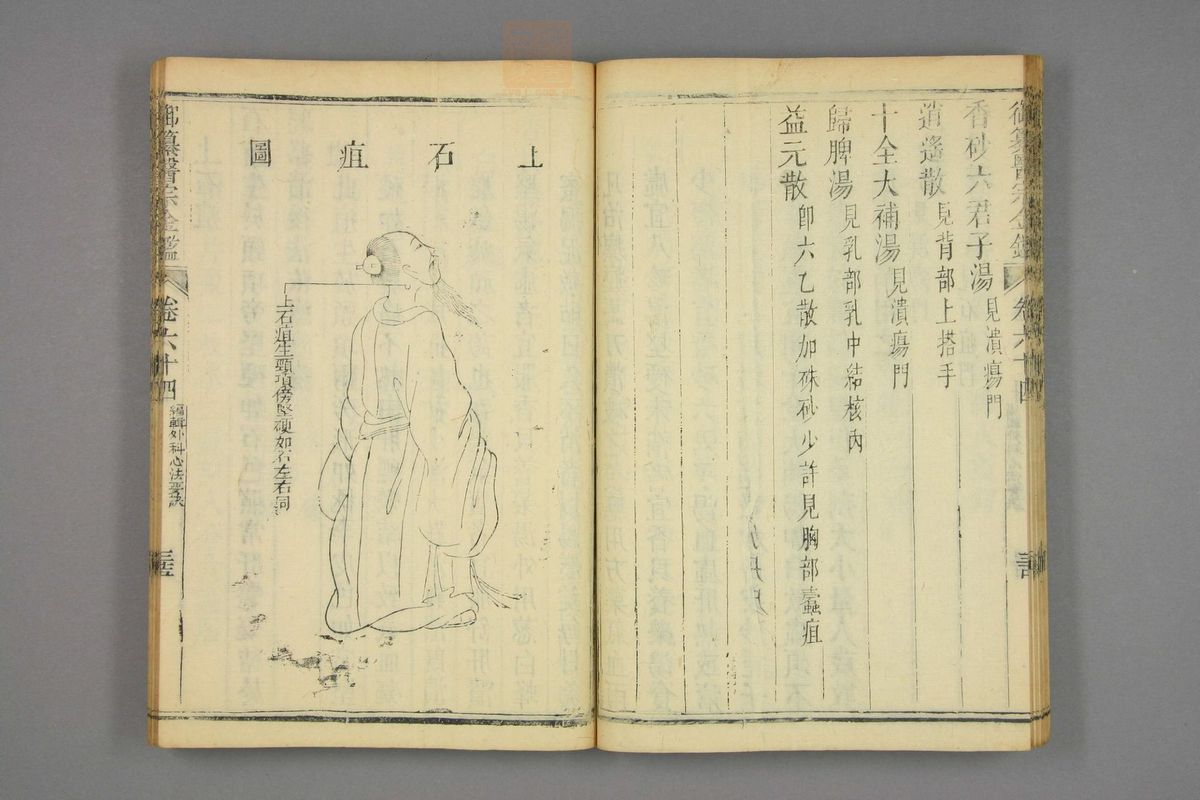 御纂醫宗金鑑 卷六十四
香砂六君子湯 見潰瘍門
逍遙散 見背部上搭手
十全大補湯 見潰瘍門
歸脾湯 見乳部乳中結核內
益元散 即六乙散加硃砂少許見胸部蠹疽
上石疽圖
上石疽生頸項傍堅硬如石左右同
御纂醫宗金鑑 卷六十四 編輯外科心法要訣